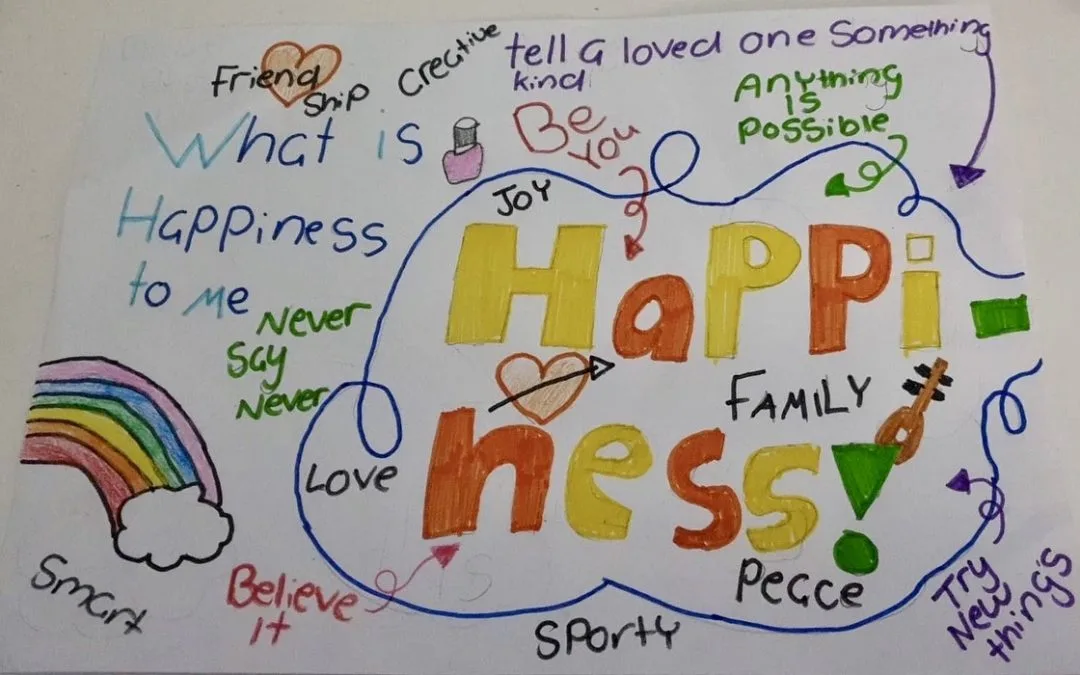 Friend
Ship
Creative
tell a loved one Something
kind
Anything
is
possible
What is
Happiness
to me
Be
You
Joy
Happi-
ness!
Never
Say
Never
FAMILY
Love
Peace
Smart
Believe
it
Sporty
Try
New
things